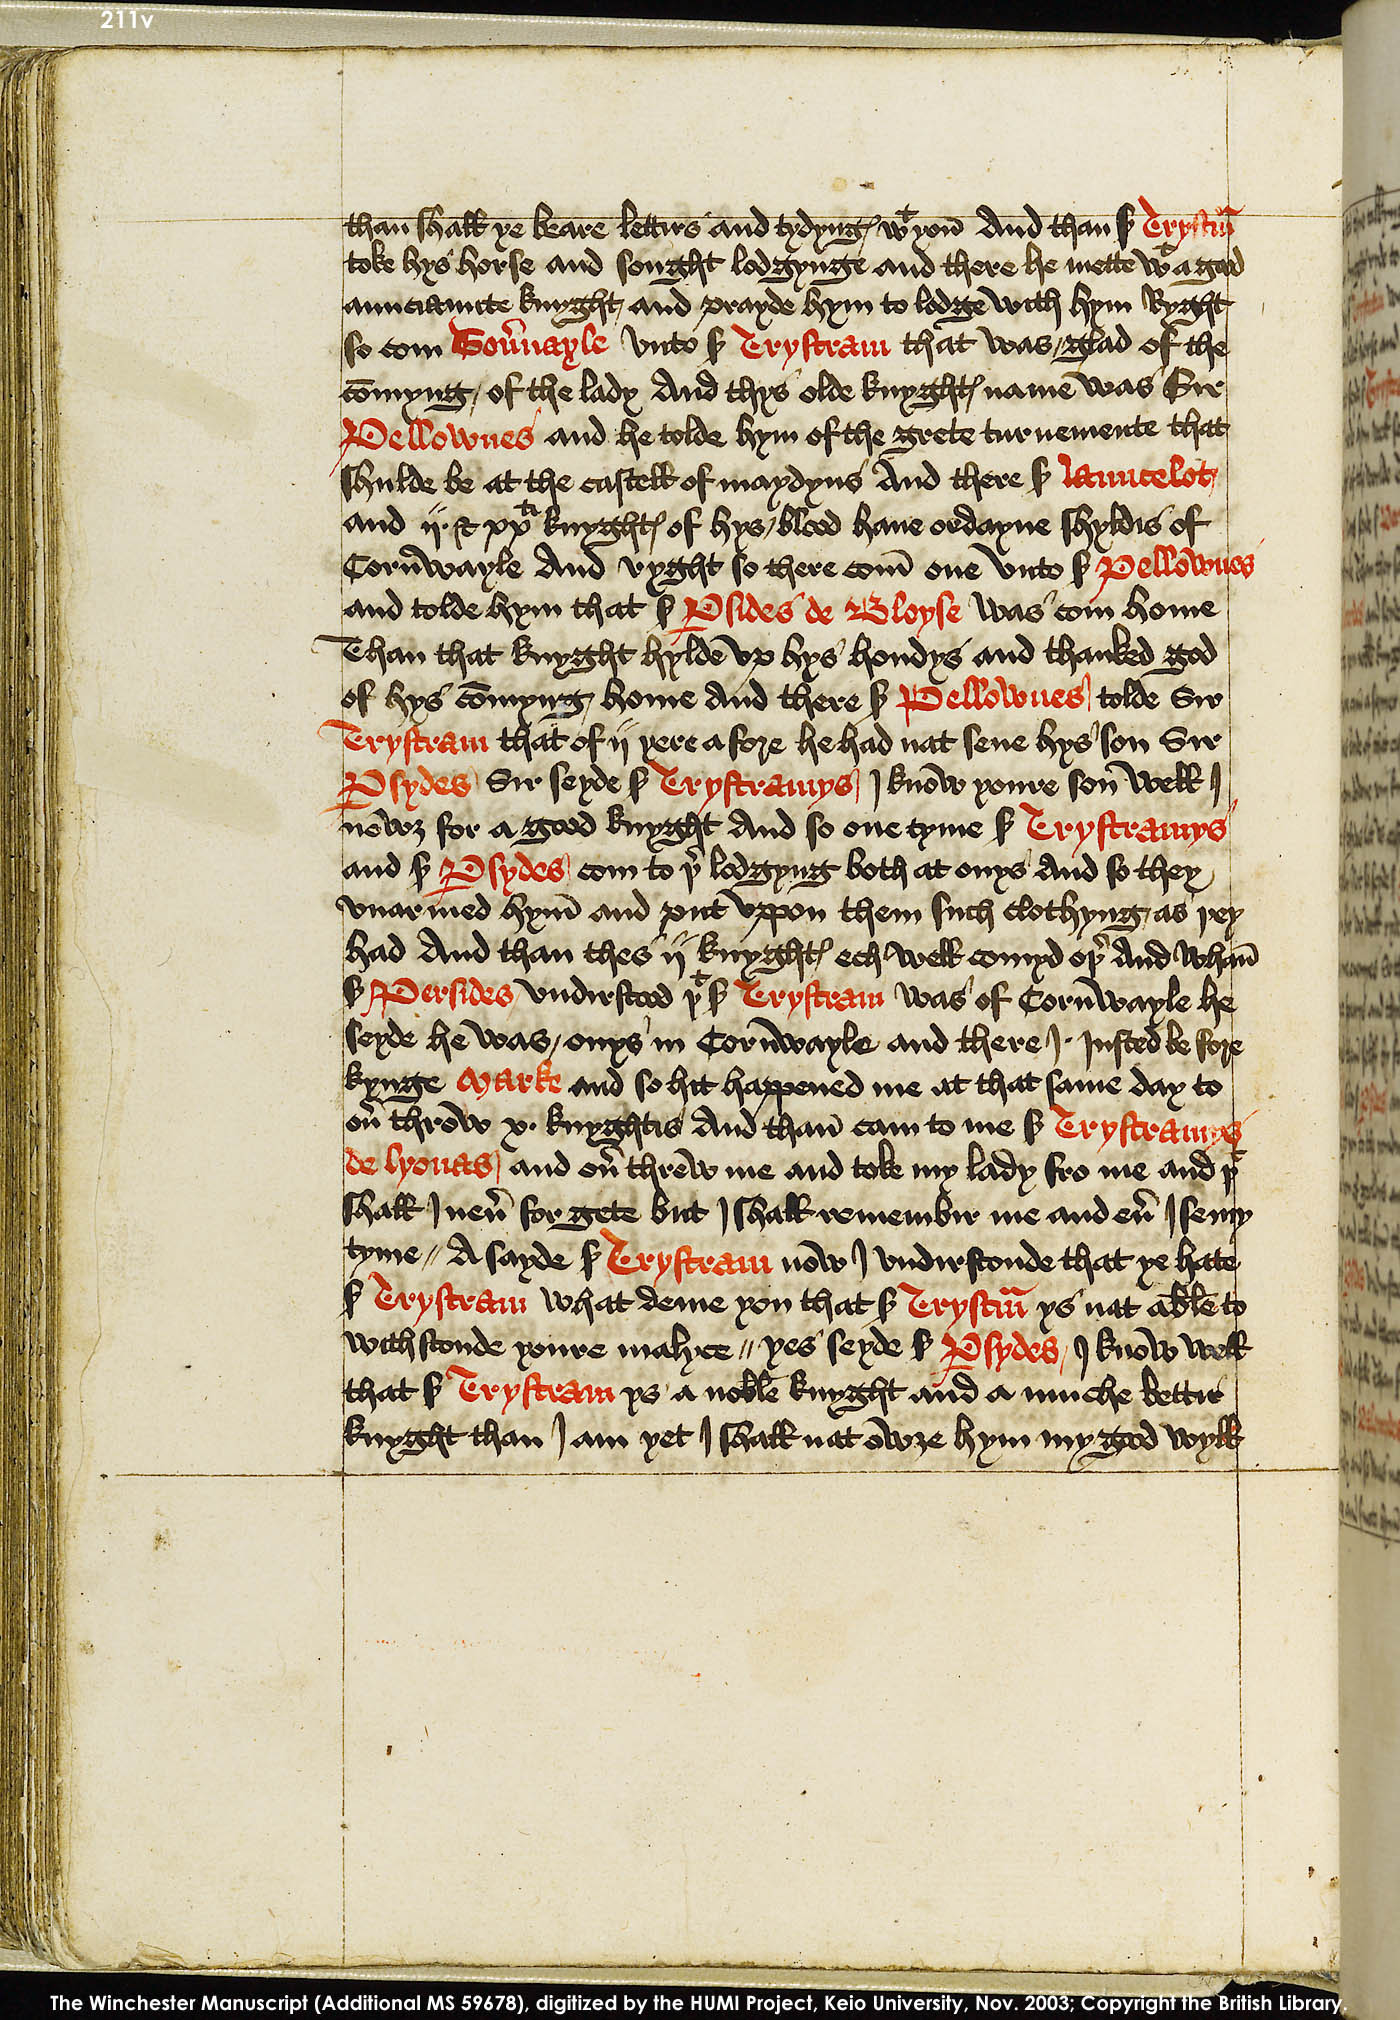 211v
than shall ye beare lettirs and tydyngꝭ wᵗ you And than ẜ Trystᵃm
toke hys horse and sought lodgynge and there he mette wᵗ a good
aunciaunte knyght and prayde hym to lodge with hym Ryght
so com Gou̅nayle vnto ẜ Trystram that was glad of the
co̅myng of the lady And thys olde knyghtꝭ name was Sir
Pellownes and he tolde hym of the grete turnemente that
shulde be at the castell of maydyns And there ẜ launcelot
and ij · & xxxᵗⁱ knyghtꝭ of hys blood haue ordayne shyldis of
Corn̅wayle And ryght so there com̅ one vnto ẜ Pellownes
and tolde hym that ẜ Ꝑsides de Bloyse was com home
Than that knyght hylde vp hys hondys and thanked god
of hys co̅myng home And there ẜ Pellownes tolde Sir
Trystram that of ij yere a fore he had nat sene hys son Sir
Ꝑsydes Sir seyde ẜ Trystramys I know youre son̅ well I
nowȝ for a good knyght And so one tyme ẜ Trystramys
and ẜ Ꝑsydes com to þʳ lodgyng both at onys And so they
vnarmed hym̅ and put vppon them such clothyng as þey
had And than thes ij knyghtꝭ ech well comyd oþʳ And whan̅
ẜ Persides vndirstood þᵗ ẜ Trystram was of Corn̅wayle he
seyde he was onys in Corn̅wayle and there I · Justed be fore
kynge Marke and so hit happened me at that same day to
ou̅ throw x · knyghtis And than̅ cam to me ẜ Trystramys
de lyonas and ou̅ threw me and toke my lady fro me and þᵗ
shall I neu̅ for gete but I shall remembir me and eu̅ I se my
tyme // A sayde ẜ Trystram now I vndirstonde that ye hate
ẜ Trystram what deme you that ẜ Trystᵃm ys nat able to
withstonde youre malyce // yes seyde ẜ Ꝑsydes I know well
that ẜ Trystram ys a noble knyght and a muche bettir
knyght than I am yet I shall nat owȝe hym my good wyll
The Winchester Manuscript (Additional MS 59678), digitized by the HUMI Project, Keio University, Nov. 2003; Copyright the British Library.